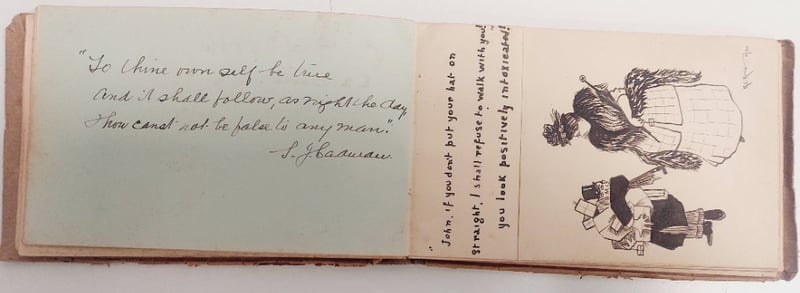 "To thine own self be true
And it shall follow, as night the day,
Thou canst not be false to any man."
S. J. Cadman
"John, if you don't put your hat on
straight, I shall refuse to walk with you!
you look positively intoxicated!"